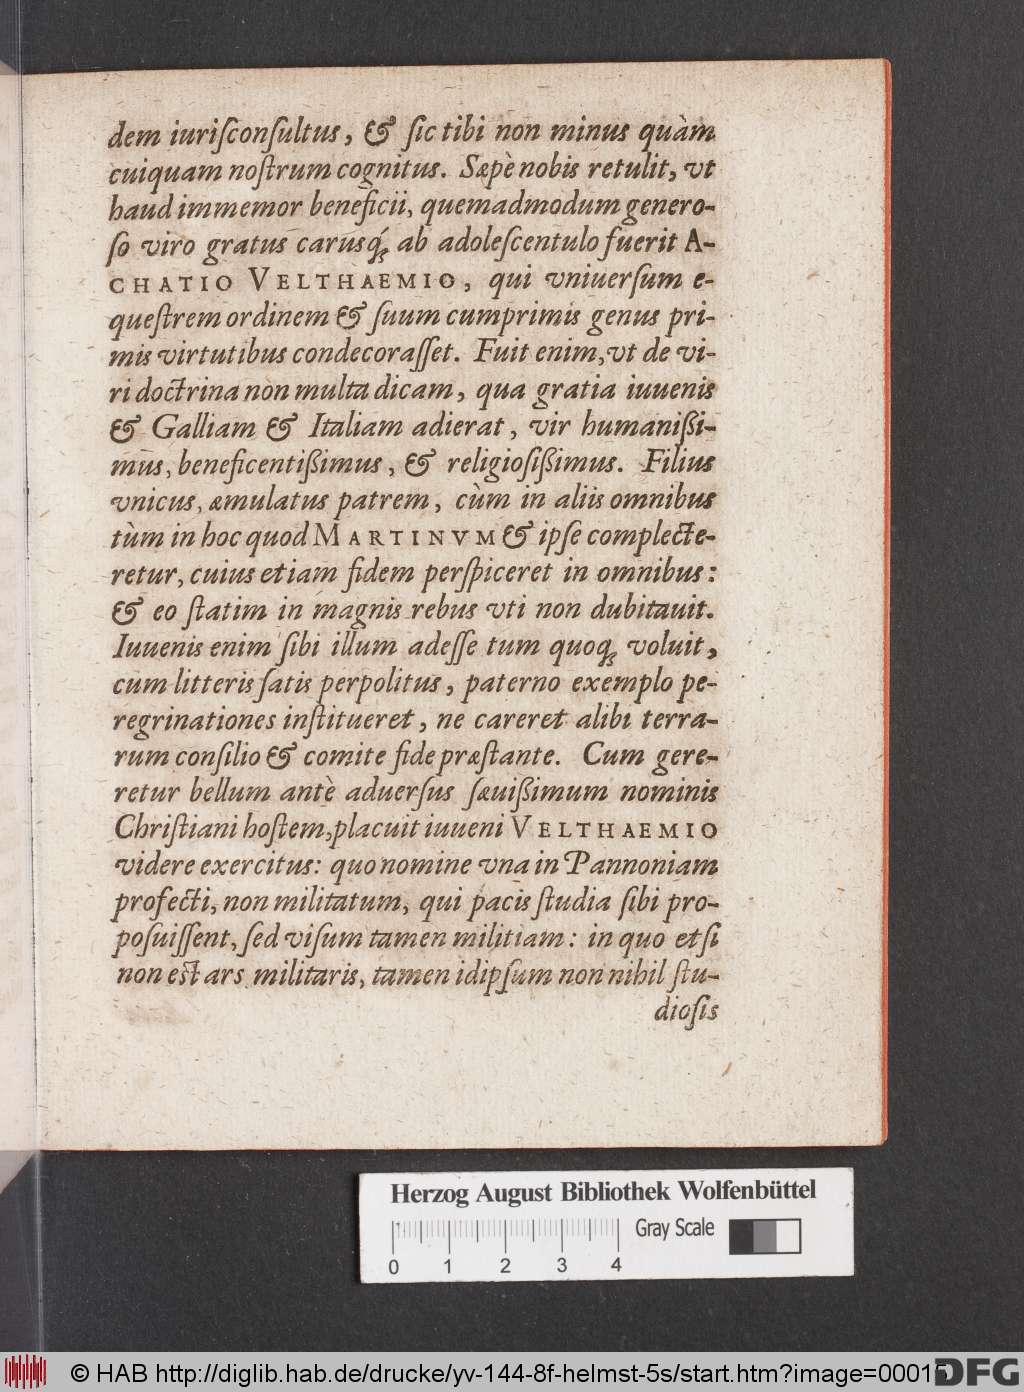 dem iuriſconſultus, & ſic tibi non minus quàm
cuiquam noſtrum cognitus. Sæpè nobis retulit, vt
haud immemor beneficii, quemadmodum genero-
ſo viro gratus carusq́; ab adoleſcentulo fuerit A-
CHATIO VELTHAEMIO, qui vniuerſum e-
queſtrem ordinem & ſuum cumprimis genus pri-
mis virtutibus condecoraſſet. Fuit enim, vt de vi-
ri doctrina non multa dicam, qua gratia iuuenis
& Galliam & Italiam adierat, vir humanißi-
mus, beneficentißimus, & religioſißimus. Filius
vnicus, æmulatus patrem, cùm in aliis omnibus
tùm in hoc quod MARTINVM & ipſe complecte-
retur, cuius etiam fidem perſpiceret in omnibus:
& eo ſtatim in magnis rebus vti non dubitauit.
Iuuenis enim ſibi illum adeſſe tum quoq; voluit,
cum litteris ſatis perpolitus, paterno exemplo pe-
regrinationes inſtitueret, ne careret alibi terra-
rum conſilio & comite fide præſtante. Cum gere-
retur bellum antè aduerſus ſæuißimum nominis
Chriſtiani hoſtem, placuit iuueni VELTHAEMIO
videre exercitus: quo nomine vna in Pannoniam
profecti, non militatum, qui pacis ſtudia ſibi pro-
poſuiſſent, ſed viſum tamen militiam: in quo etſi
non eſt ars militaris, tamen idipſum non nihil ſtu-
dioſis
Herzog August Bibliothek Wolfenbüttel
Gray Scale
0 1 2 3 4
© HAB http://diglib.hab.de/drucke/yv-144-8f-helmst-5s/start.htm?image=00015
DFG